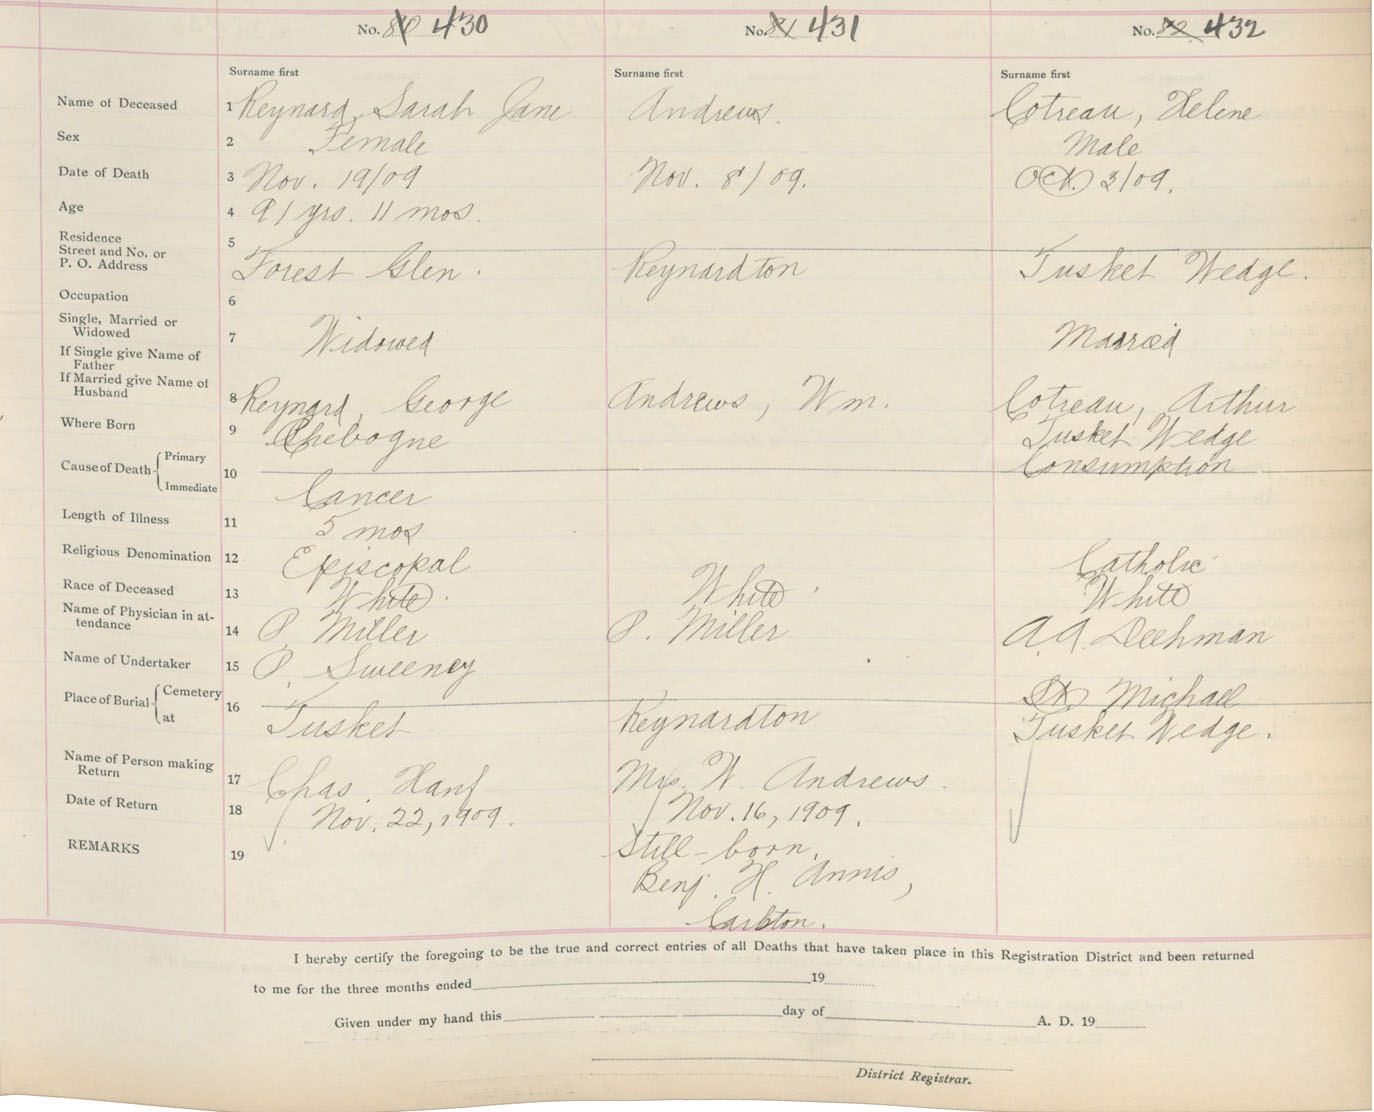 No. 80 430 No. 81 431 No. 82 432
Surname first Surname first Surname first
Name of Deceased 1 Reynard, Sarah Jane Andrews. Cotreau, Helene
Sex 2 Female Male
Date of Death 3 Nov. 19/09 Nov. 8/09. Oct. 3/09.
Age 4 91 yrs. 11 mos.
Residence
Street and No. or 5
P. O. Address Forest Glen. Reynardton Tusket Wedge.
Occupation 6
Single, Married or
Widowed 7 Widowed Married
If Single give Name of
Father
If Married give Name of
Husband 8 Reynard, George Andrews, Wm. Cotreau, Arthur
Where Born 9 Chebogne Tusket Wedge
Cause of Death { Primary 10 Consumption
Immediate Cancer
Length of Illness 11 5 mos
Religious Denomination 12 Episcopal Catholic
Race of Deceased 13 White. White White
Name of Physician in at-
tendance 14 P. Miller P. Miller A. A. Deehman
Name of Undertaker 15 P. Sweeney
Place of Burial { Cemetery 16 St. Michael
at Tusket Reynardton Tusket Wedge.
Name of Person making
Return 17 Chas. Mrs. W. Andrews.
Date of Return 18 Nov. 22, 1909. Nov. 16, 1909.
REMARKS 19 Still-born.
Benj. H. Annis,
Carlton.
I hereby certify the foregoing to be the true and correct entries of all Deaths that have taken place in this Registration District and been returned
to me for the three months ended 19
Given under my hand this day of A. D. 19
District Registrar.